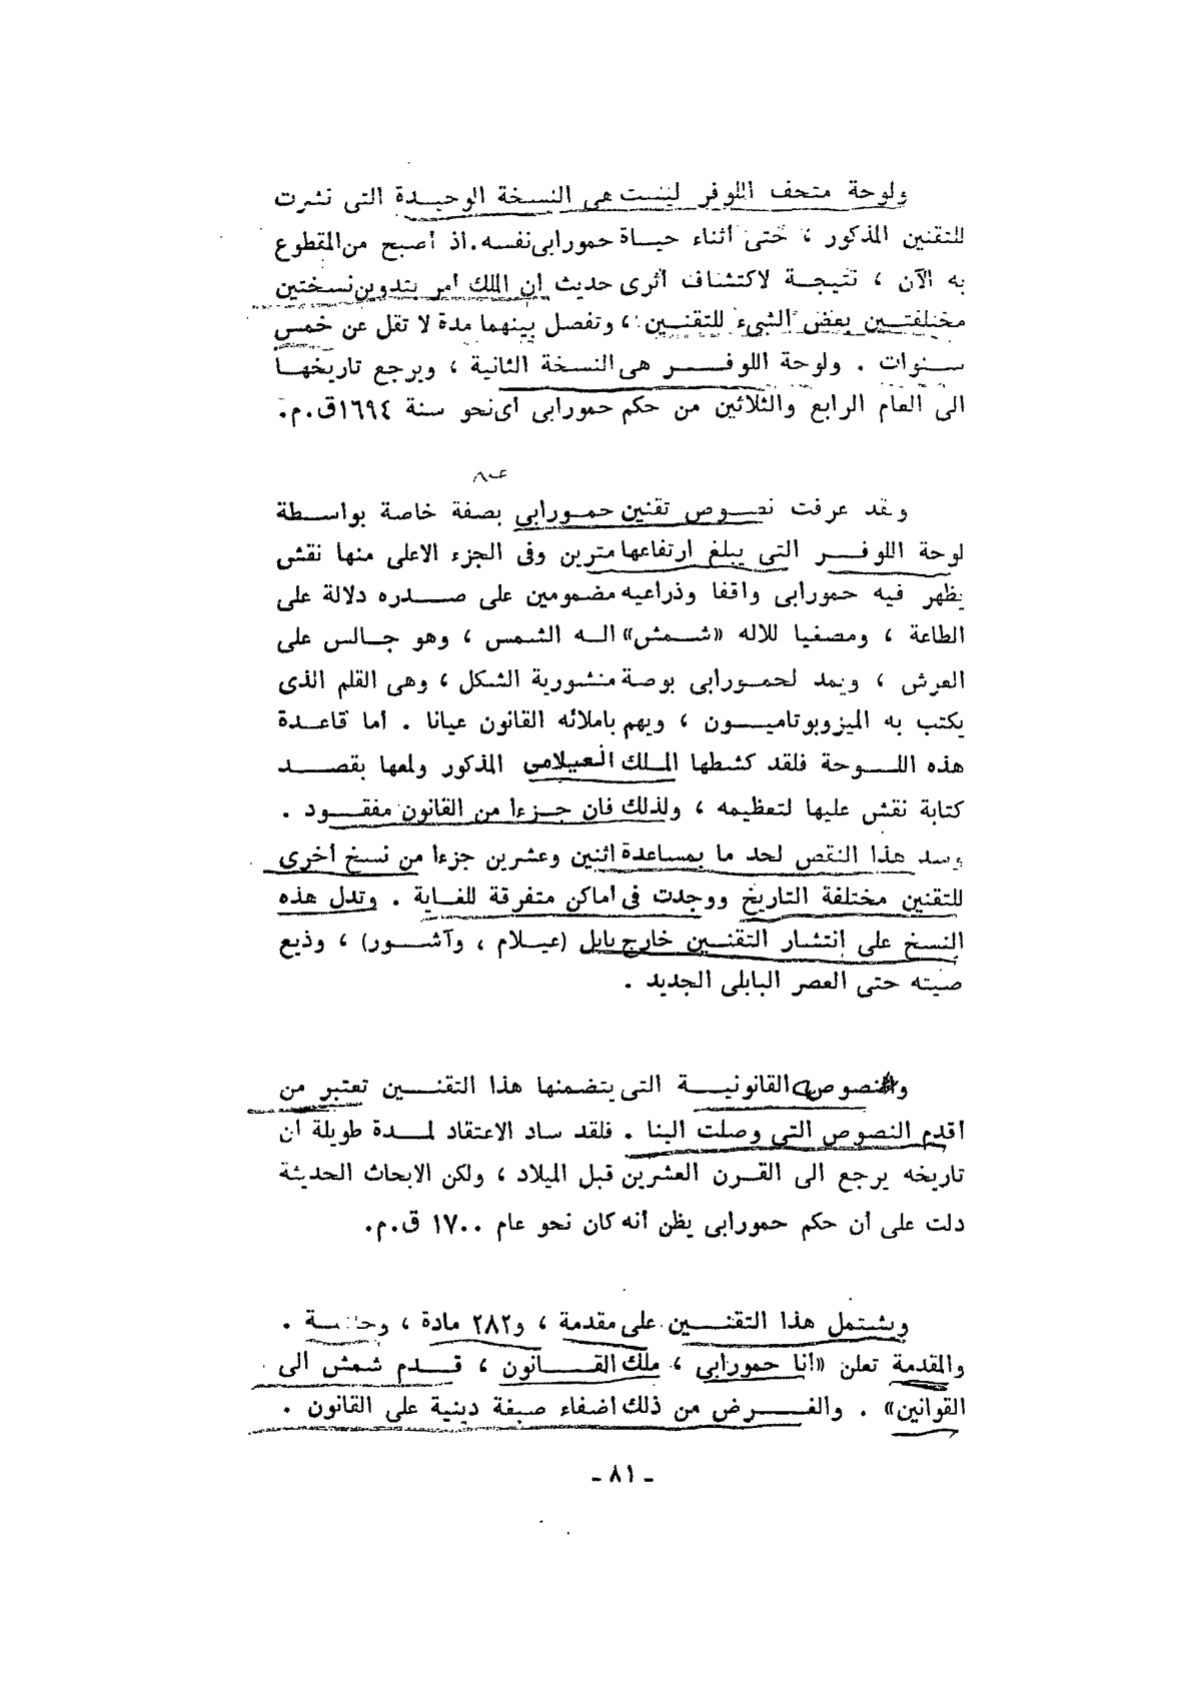 ولوحة متحف اللوفر ليست هى النسخة الوحيدة التى نشرت
للتقنين المذكور ، حتى أثناء حياة حمورابى نفسه. اذ أصبح من المقطوع
به الآن ، نتيجة لاكتشاف أثرى حديث ان الملك أمر بتدوين نسختين
مختلفتين بعض الشىء للتقنين ، وتفصل بينهما مدة لا تقل عن خمس
سنوات . ولوحة اللوفر هى النسخة الثانية ، ويرجع تاريخها
الى العام الرابع والثلاثين من حكم حمورابى أى نحو سنة ١٦٩٤ق.م.
وقد عرفت نصوص تقنين حمورابى بصفة خاصة بواسطة
لوحة اللوفر التى يبلغ ارتفاعها مترين وفى الجزء الاعلى منها نقش
يظهر فيه حمورابى واقفا وذراعيه مضمومين على صدره دلالة على
الطاعة ، ومصغيا للاله «شمش» اله الشمس ، وهو جالس على
العرش ، ويمد لحمورابى بوصة منشورية الشكل ، وهى القلم الذى
يكتب به الميزوبوتاميون ، ويهم باملائه القانون عيانا . أما قاعدة
هذه اللوحة فلقد كشطها الملك العيلامى المذكور ولمعها بقصد
كتابة نقش عليها لتعظيمه ، ولذلك فان جزءا من القانون مفقود .
وسد هذا النقص لحد ما بمساعدة اثنين وعشرين جزءا من نسخ أخرى
للتقنين مختلفة التاريخ ووجدت فى أماكن متفرقة للغاية . وتدل هذه
النسخ على انتشار التقنين خارج بابل (عيلام ، وآشور) ، وذيع
صيته حتى العصر البابلى الجديد .
والنصوص القانونية التى يتضمنها هذا التقنين تعتبر من
أقدم النصوص التى وصلت الينا . فلقد ساد الاعتقاد لمدة طويلة أن
تاريخه يرجع الى القرن العشرين قبل الميلاد ، ولكن الابحاث الحديثة
دلت على أن حكم حمورابى يظن أنه كان نحو عام ١٧٠٠ ق.م.
ويشتمل هذا التقنين على مقدمة ، و٢٨٢ مادة ، وخاتمة .
والمقدمة تعلن «أنا حمورابى ، ملك القانون ، قدم شمش الى
القوانين» . والغرض من ذلك اضفاء صبغة دينية على القانون .
ـ ٨١ ـ